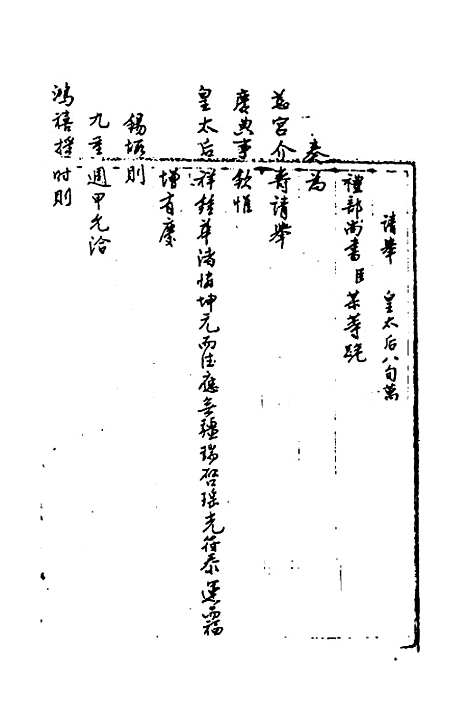 請舉 皇太后八旬萬
禮部尚書臣某等跪
奏為
慈宮介壽請舉
慶典事欽惟
皇太后祥鍾華渚惜坤元而德應無疆瑞啟瑶光符泰運而福
增有慶
錫垢則
九重週甲允洽
鴻禧援時則